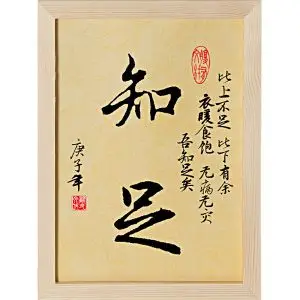 比上不足 比下有余
衣暖食饱 无病无灾
吾知足矣
知足
庚子年